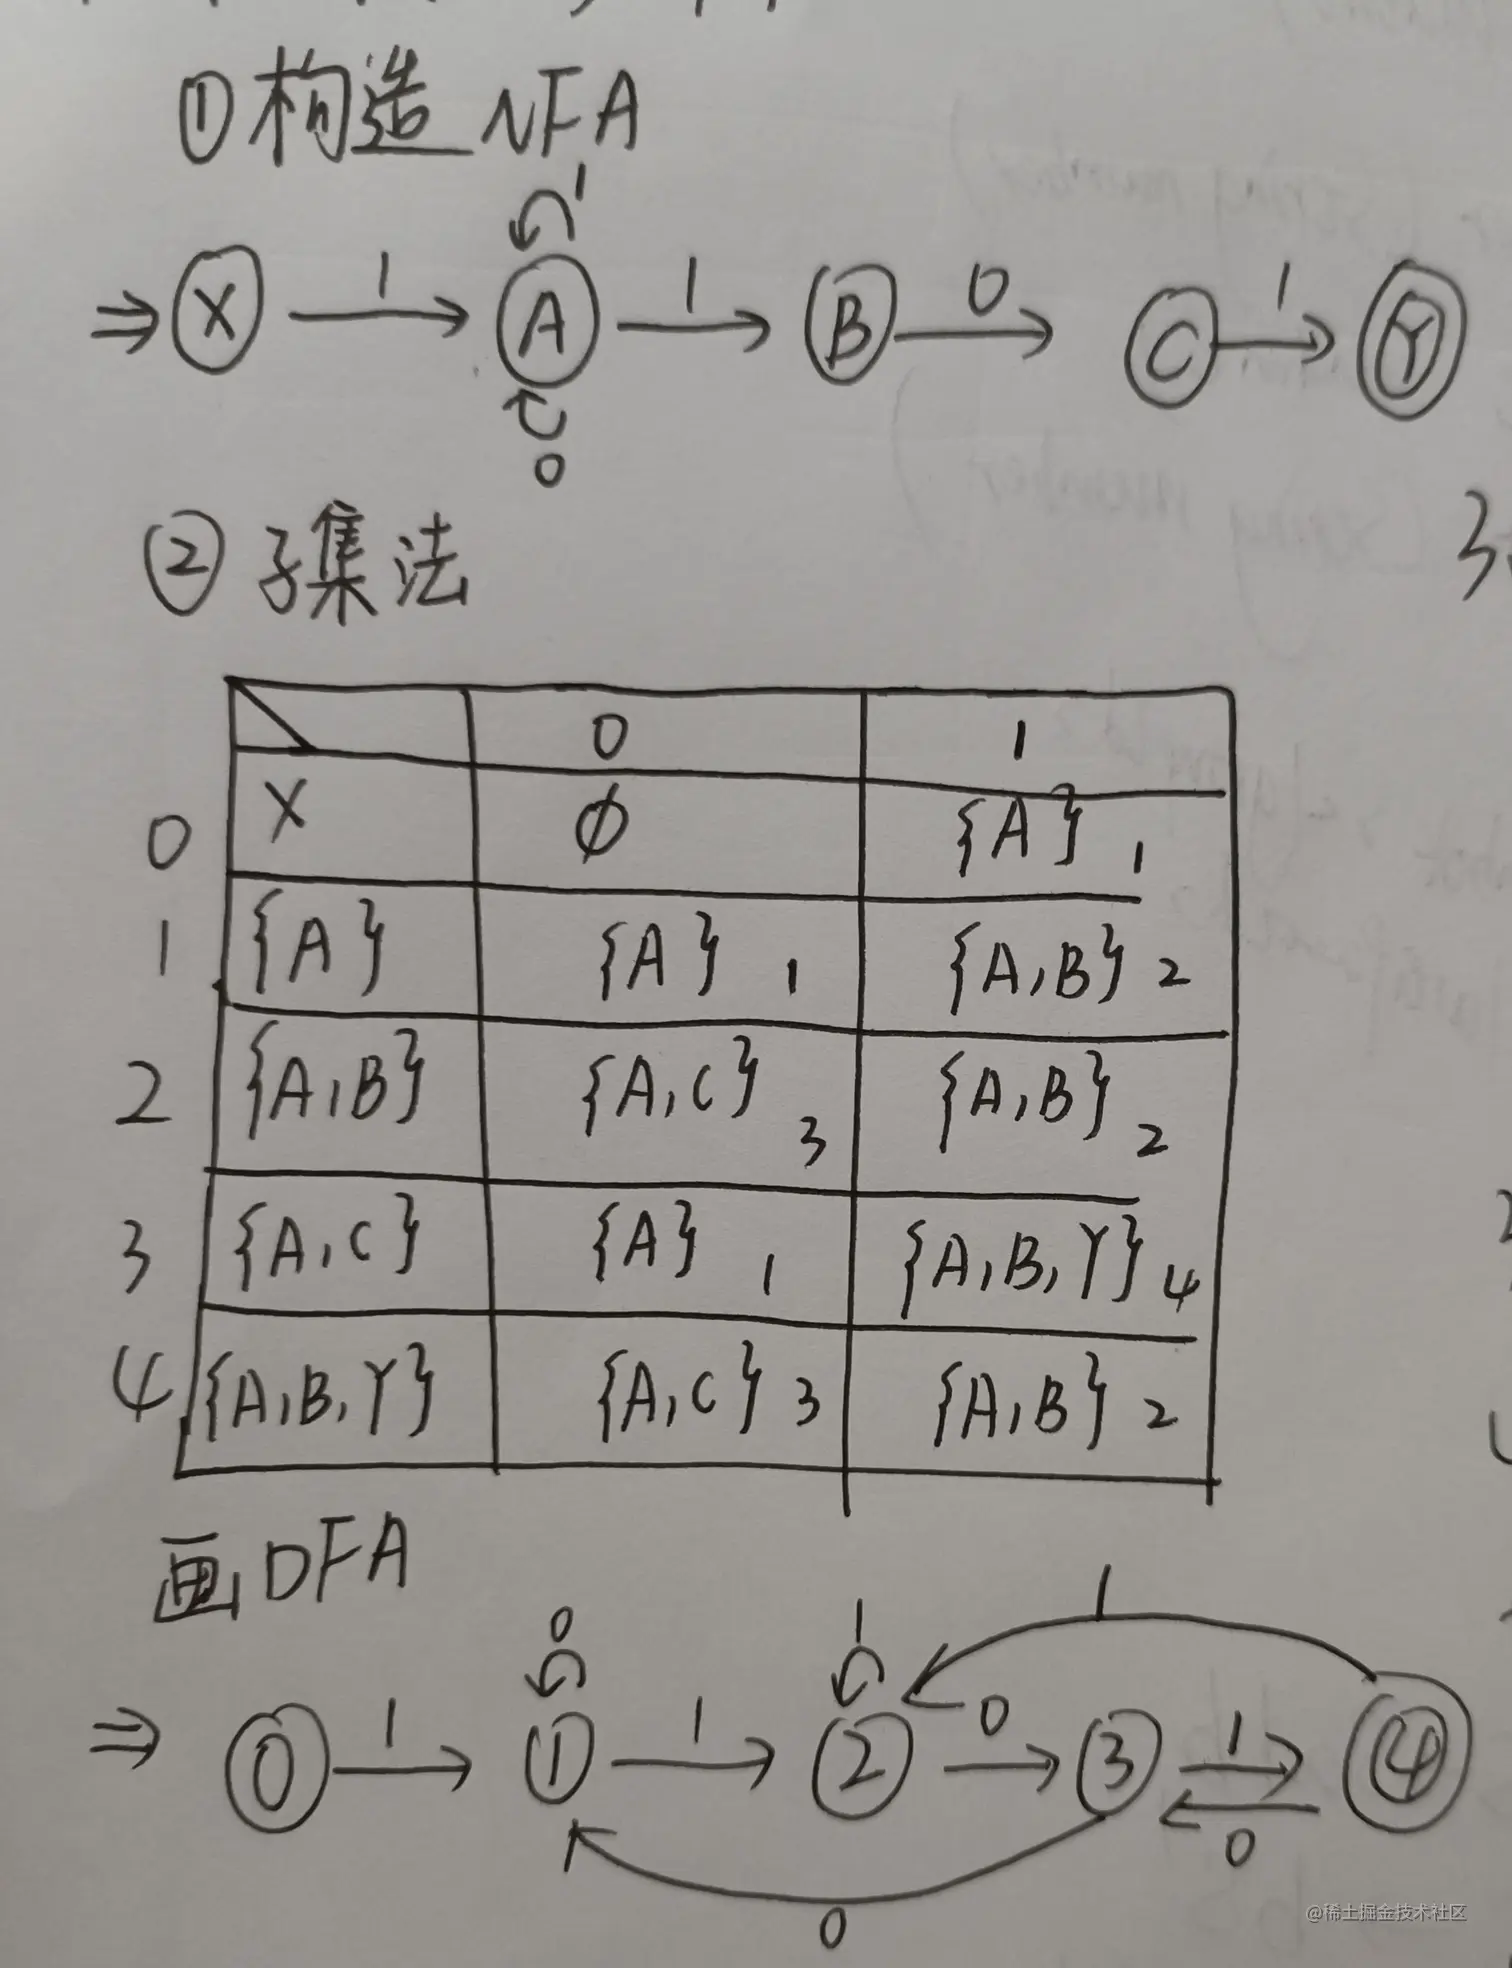 ① 构造 NFA
1
⇒ X 1 A 1 B 0 C 1 Y
0
② 子集法
0 1
0 X ∅ {A} 1
1 {A} {A} 1 {A,B} 2
2 {A,B} {A,C} 3 {A,B} 2
3 {A,C} {A} 1 {A,B,Y} 4
4 {A,B,Y} {A,C} 3 {A,B} 2
画DFA
0 1 1
⇒ 0 1 ① 1 2 0 3 1 4
0
0
@稀土掘金技术社区